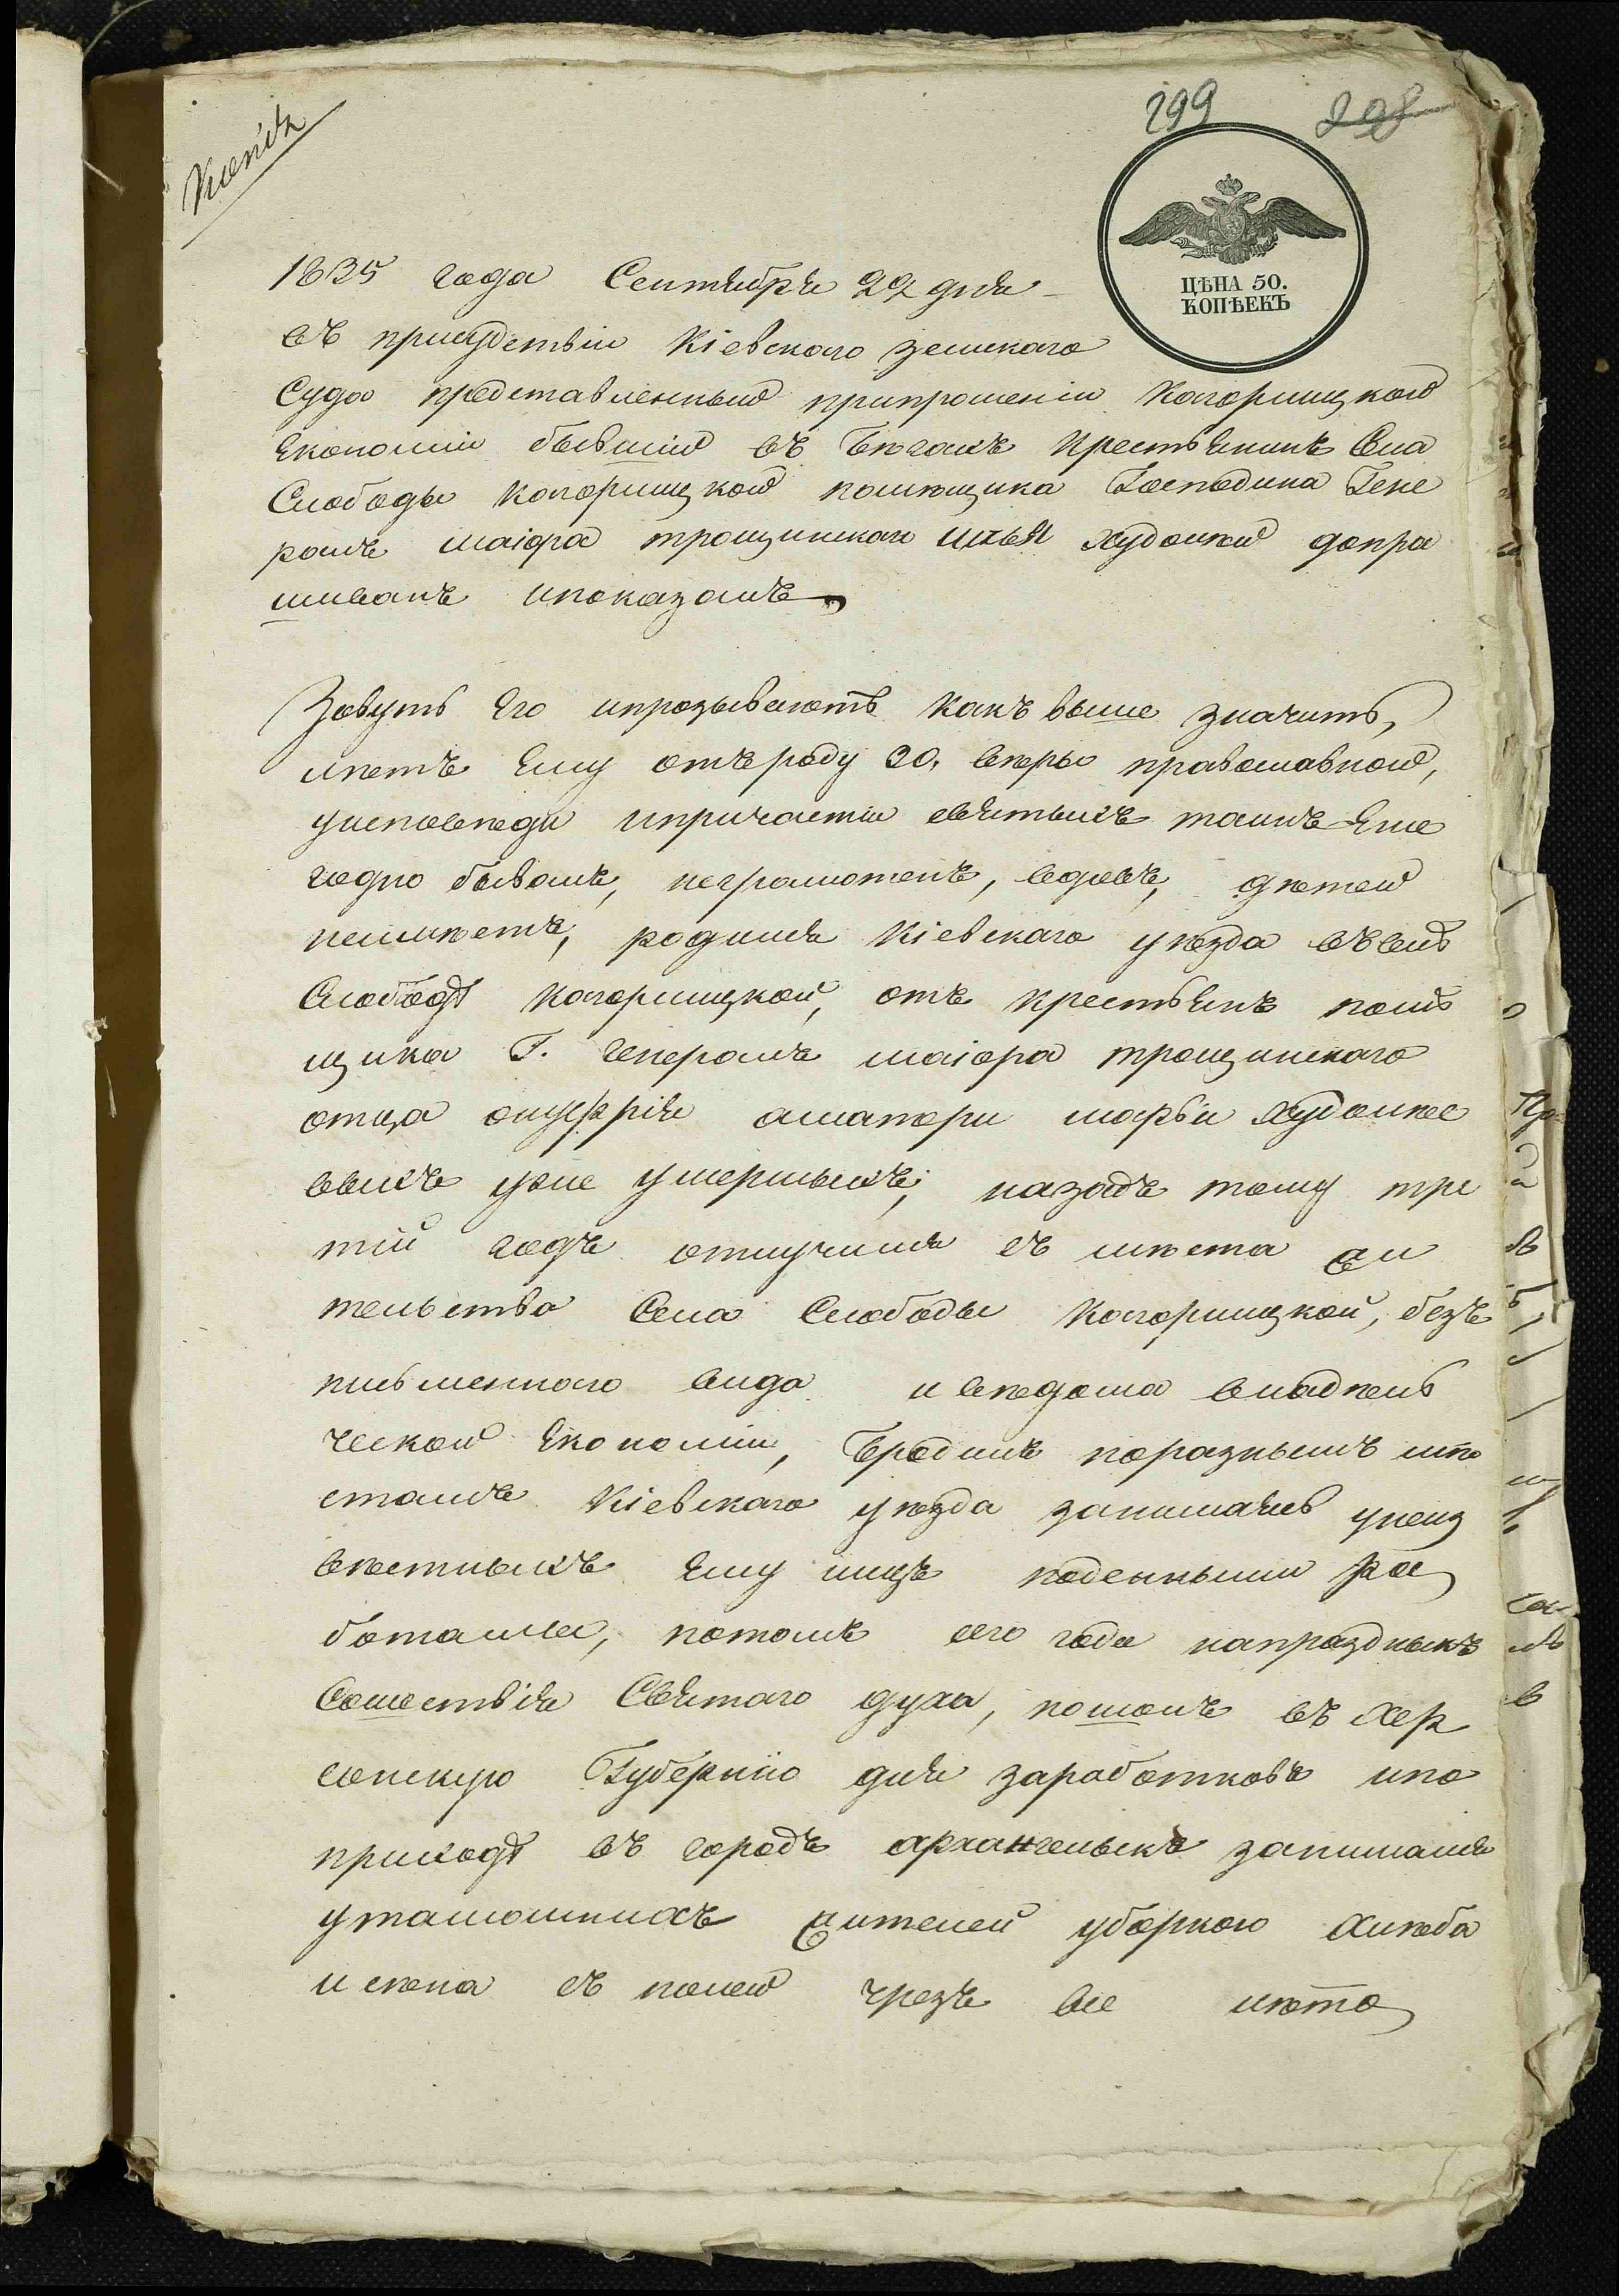 Копія
299 298
ЦѢНА 50.
КОПѢЕКЪ
1835 года Сентября 22 дня
въ присудствіи Кіевского земского
Суда представленный припрошеніи Кагорлицкой
Економіи бывшій въ Бѣгахъ крестьянинъ Села
Слободы Кагорлицкой помѣщика Господина Гене
ралъ маіора трощинскаго Илья Худолей допра
шиванъ ипоказалъ
Зовутъ Его ипрозываютъ какъ выше значитъ,
лѣтъ Ему отъроду 30, вѣры православной,
уисповѣди ипричастія святыхъ таинъ Еже
годно бывалъ, неграмотенъ, вдовъ, дѣтей
неимѣетъ, родился Кіевского уѣзда въселѣ
Слободѣ Кагорлицкой, отъ крестьянъ помѣ
щика Г. Генералъ маіора трощинского
отца онуфрія аматери марьи Худолее
выхъ уже умершыхъ; назадъ тому тре
тій годъ отлучился съ мѣста жи
тельства Села Слободы Кагорлицкой, безъ
письменного вида и вѣдома владѣль
ческой Економіи, Бродилъ поразнымъ мѣ
стамъ Кіевского уѣзда занимаясь унеиз
вѣстныхъ Ему лицъ поденными ра
ботами, потомъ сего года напраздникъ
Сошествія Святого духа, пошолъ въ Хер
сонскую Губернію для заработковъ ипо
приходѣ въ городъ архангельскъ занимался
утамошнихъ жителей уборкою хлѣба
и сена съ полей чрезъ все лѣто